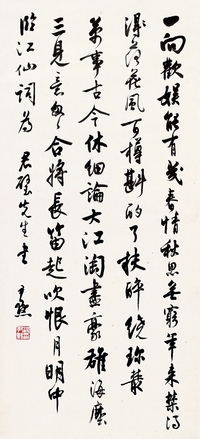 一向歡娛能有幾春情秋思無窮年來禁得
落花風百樽斟酌了扶醉繞珍叢
萬事古今休細論大江淘盡豪雄海塵
三見意匆匆合將長笛起吹恨月明中
臨江仙詞為 君璧先生書 尹默